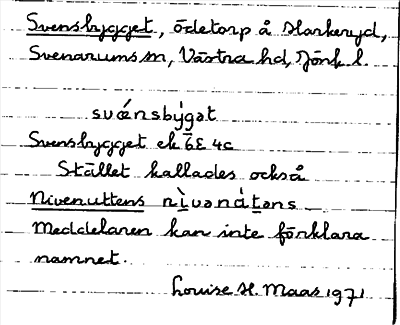 Svensbygget, ödetorp å Harkeryd,
Svenarums sn, Västra hd, Jönk l.
svǽnsbýgət
Svensbygget ek 6E 4c
Stället kallades också
Nivenuttens nìvənátəns
Meddelaren kan inte förklara
namnet.
Louise H. Maas 1971